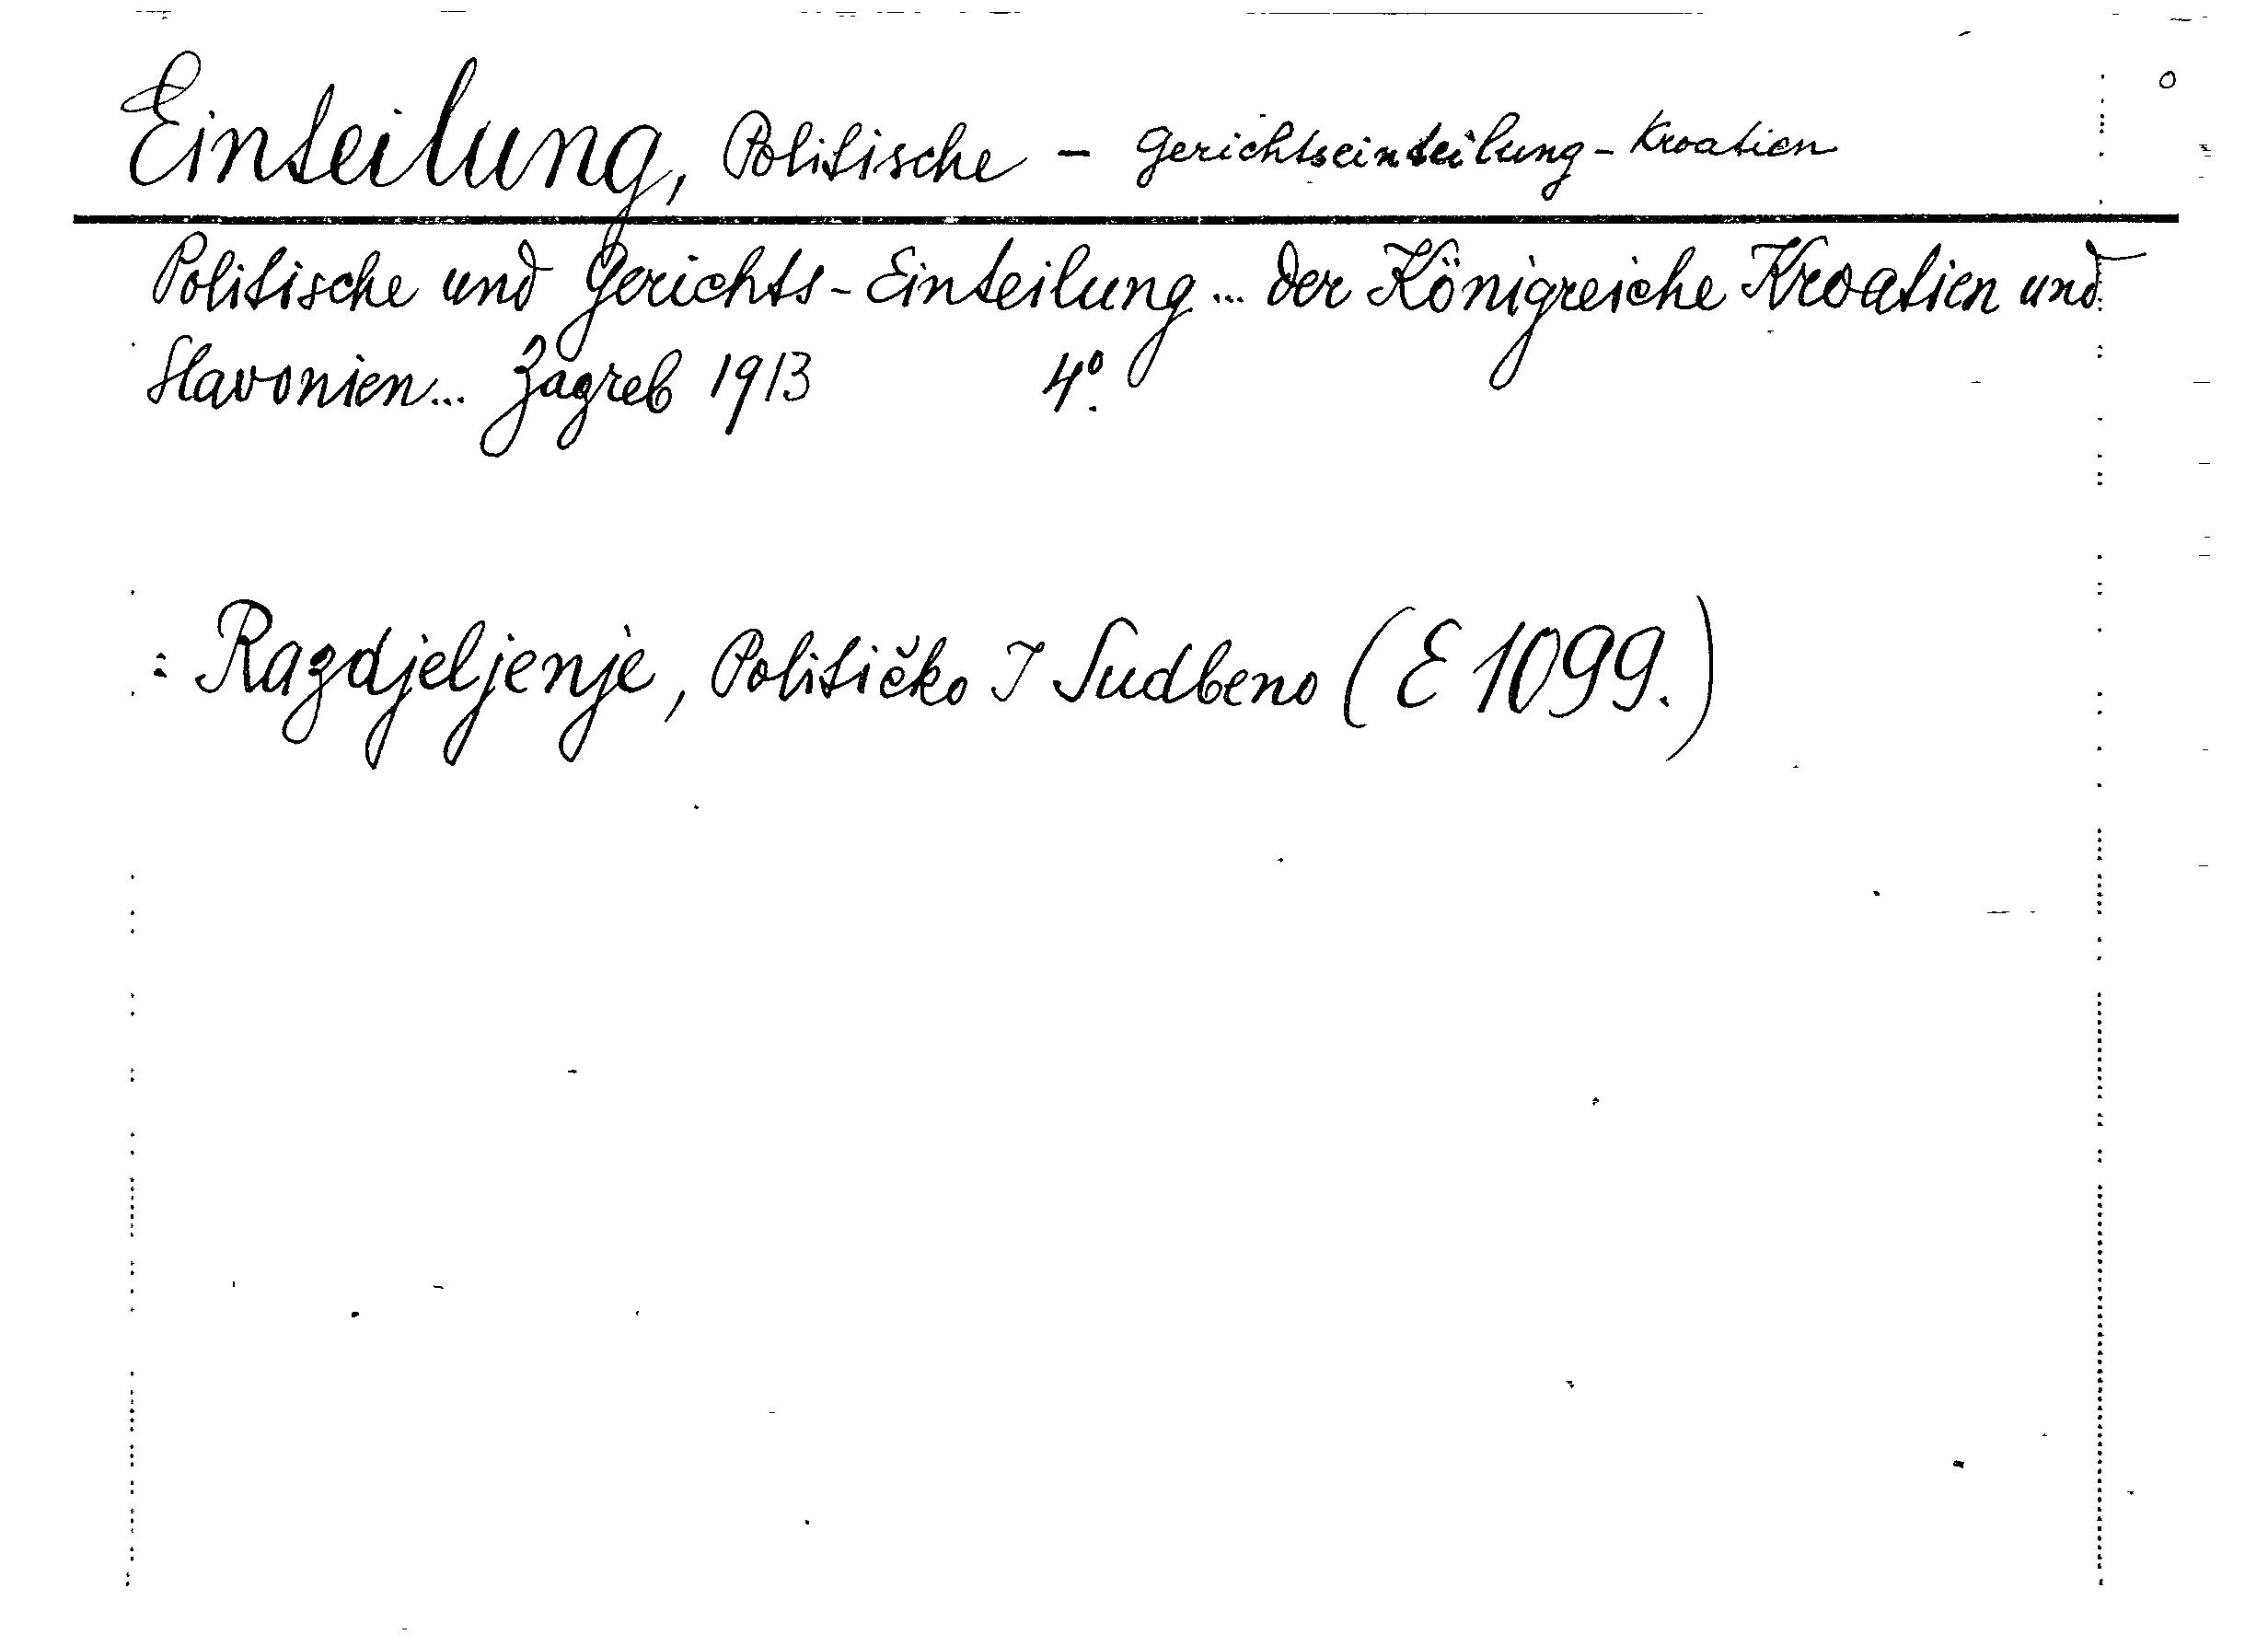 Einteilung, Politische - Gerichtseinteilung - Kroatien
Politische und Gerichts-Einteilung... der Königreiche Kroatien und
Slavonien... Zagreb 1913 4º.
= Razdjeljenje, Političko I Sudbeno (E 1099.)